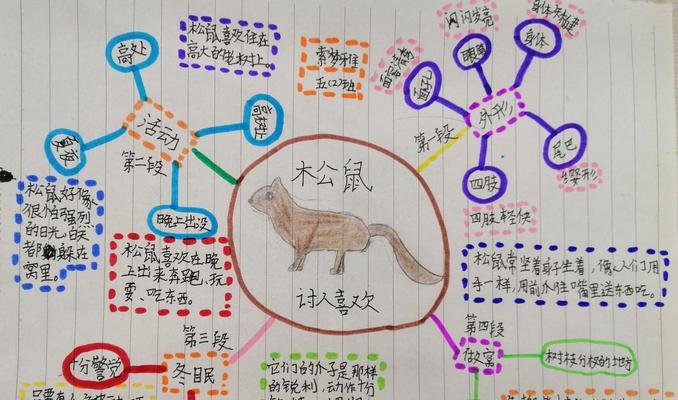 松鼠喜欢住在
高大的老树上。
高处
活动
第二段
晚上出没
松鼠好像
很怕强烈
的日光,白天
都躲在
窝里。
松鼠喜欢在晚
上出来奔跑、玩
耍、吃东西。
五(2)班
木公鼠
讨人喜欢
第一段
外形
闪闪发亮
眼睛
身体
面容
尾巴
四肢
四肢轻快
松鼠常坐着身子坐着,像人们用
手一样,用前爪往嘴里送东西吃。
第三段
冬眠
十分警觉
它们的爪子是那样
的锐利,动作十分
第四段
做窝
树枝分杈的地方